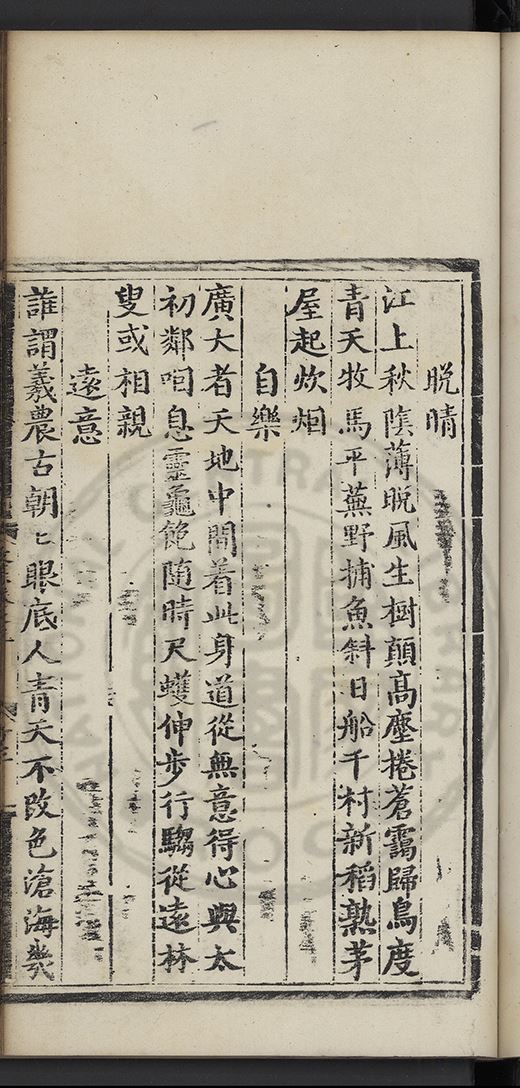 晚晴
江上秋陰薄晚風生樹顛高塵捲蒼靄歸鳥度
青天牧馬平蕪野捕魚斜日船千村新稻熟茅
屋起炊烟
自樂
廣大者天地中間着此身道從無意得心與太
初鄰咽息靈龜飽隨時尺蠖伸步行騶從遠林
叟或相親
遠意
誰謂羲農古朝〻眼底人青天不改色滄海幾